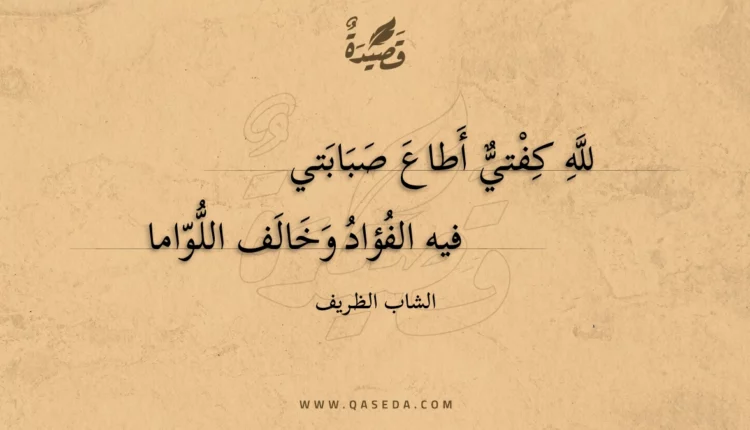 قَصِيْدَةٌ
للَّهِ كِفْتيٌّ أَطاعَ صَبَابَتي
فيه الفُؤادُ وَخَالَف اللُّوّاما
الشاب الظريف
WWW.QASEDA.COM